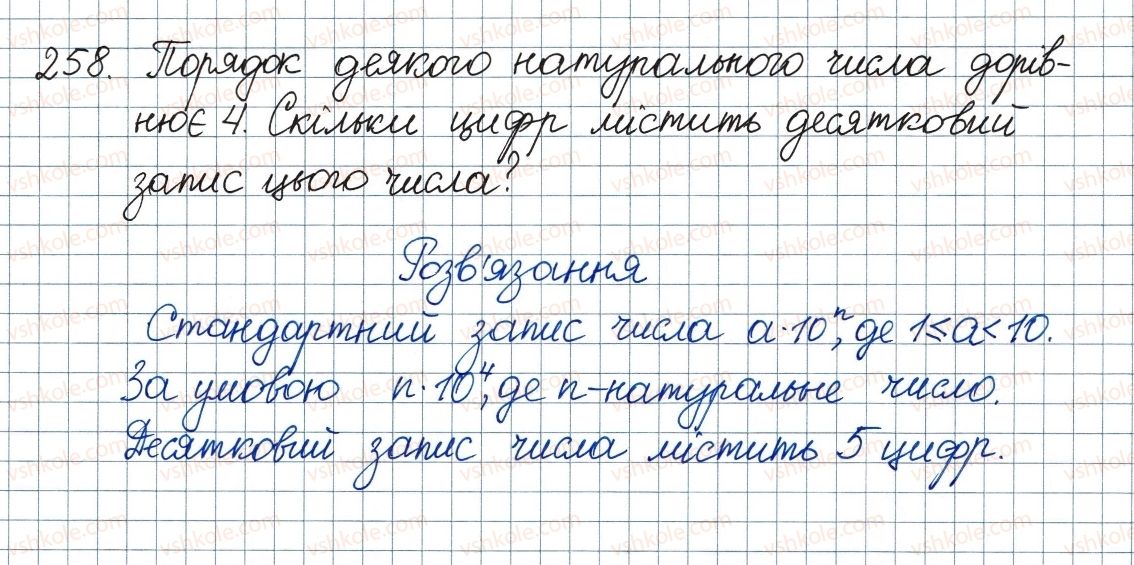 258. Порядок деякого натурального числа дорів-
нює 4. Скільки цифр містить десятковий
запис цього числа?
Розв'язання
Стандартний запис числа a·10ⁿ, де 1≤a<10.
За умовою n·10⁴, де n-натуральне число.
Десятковий запис числа містить 5 цифр.